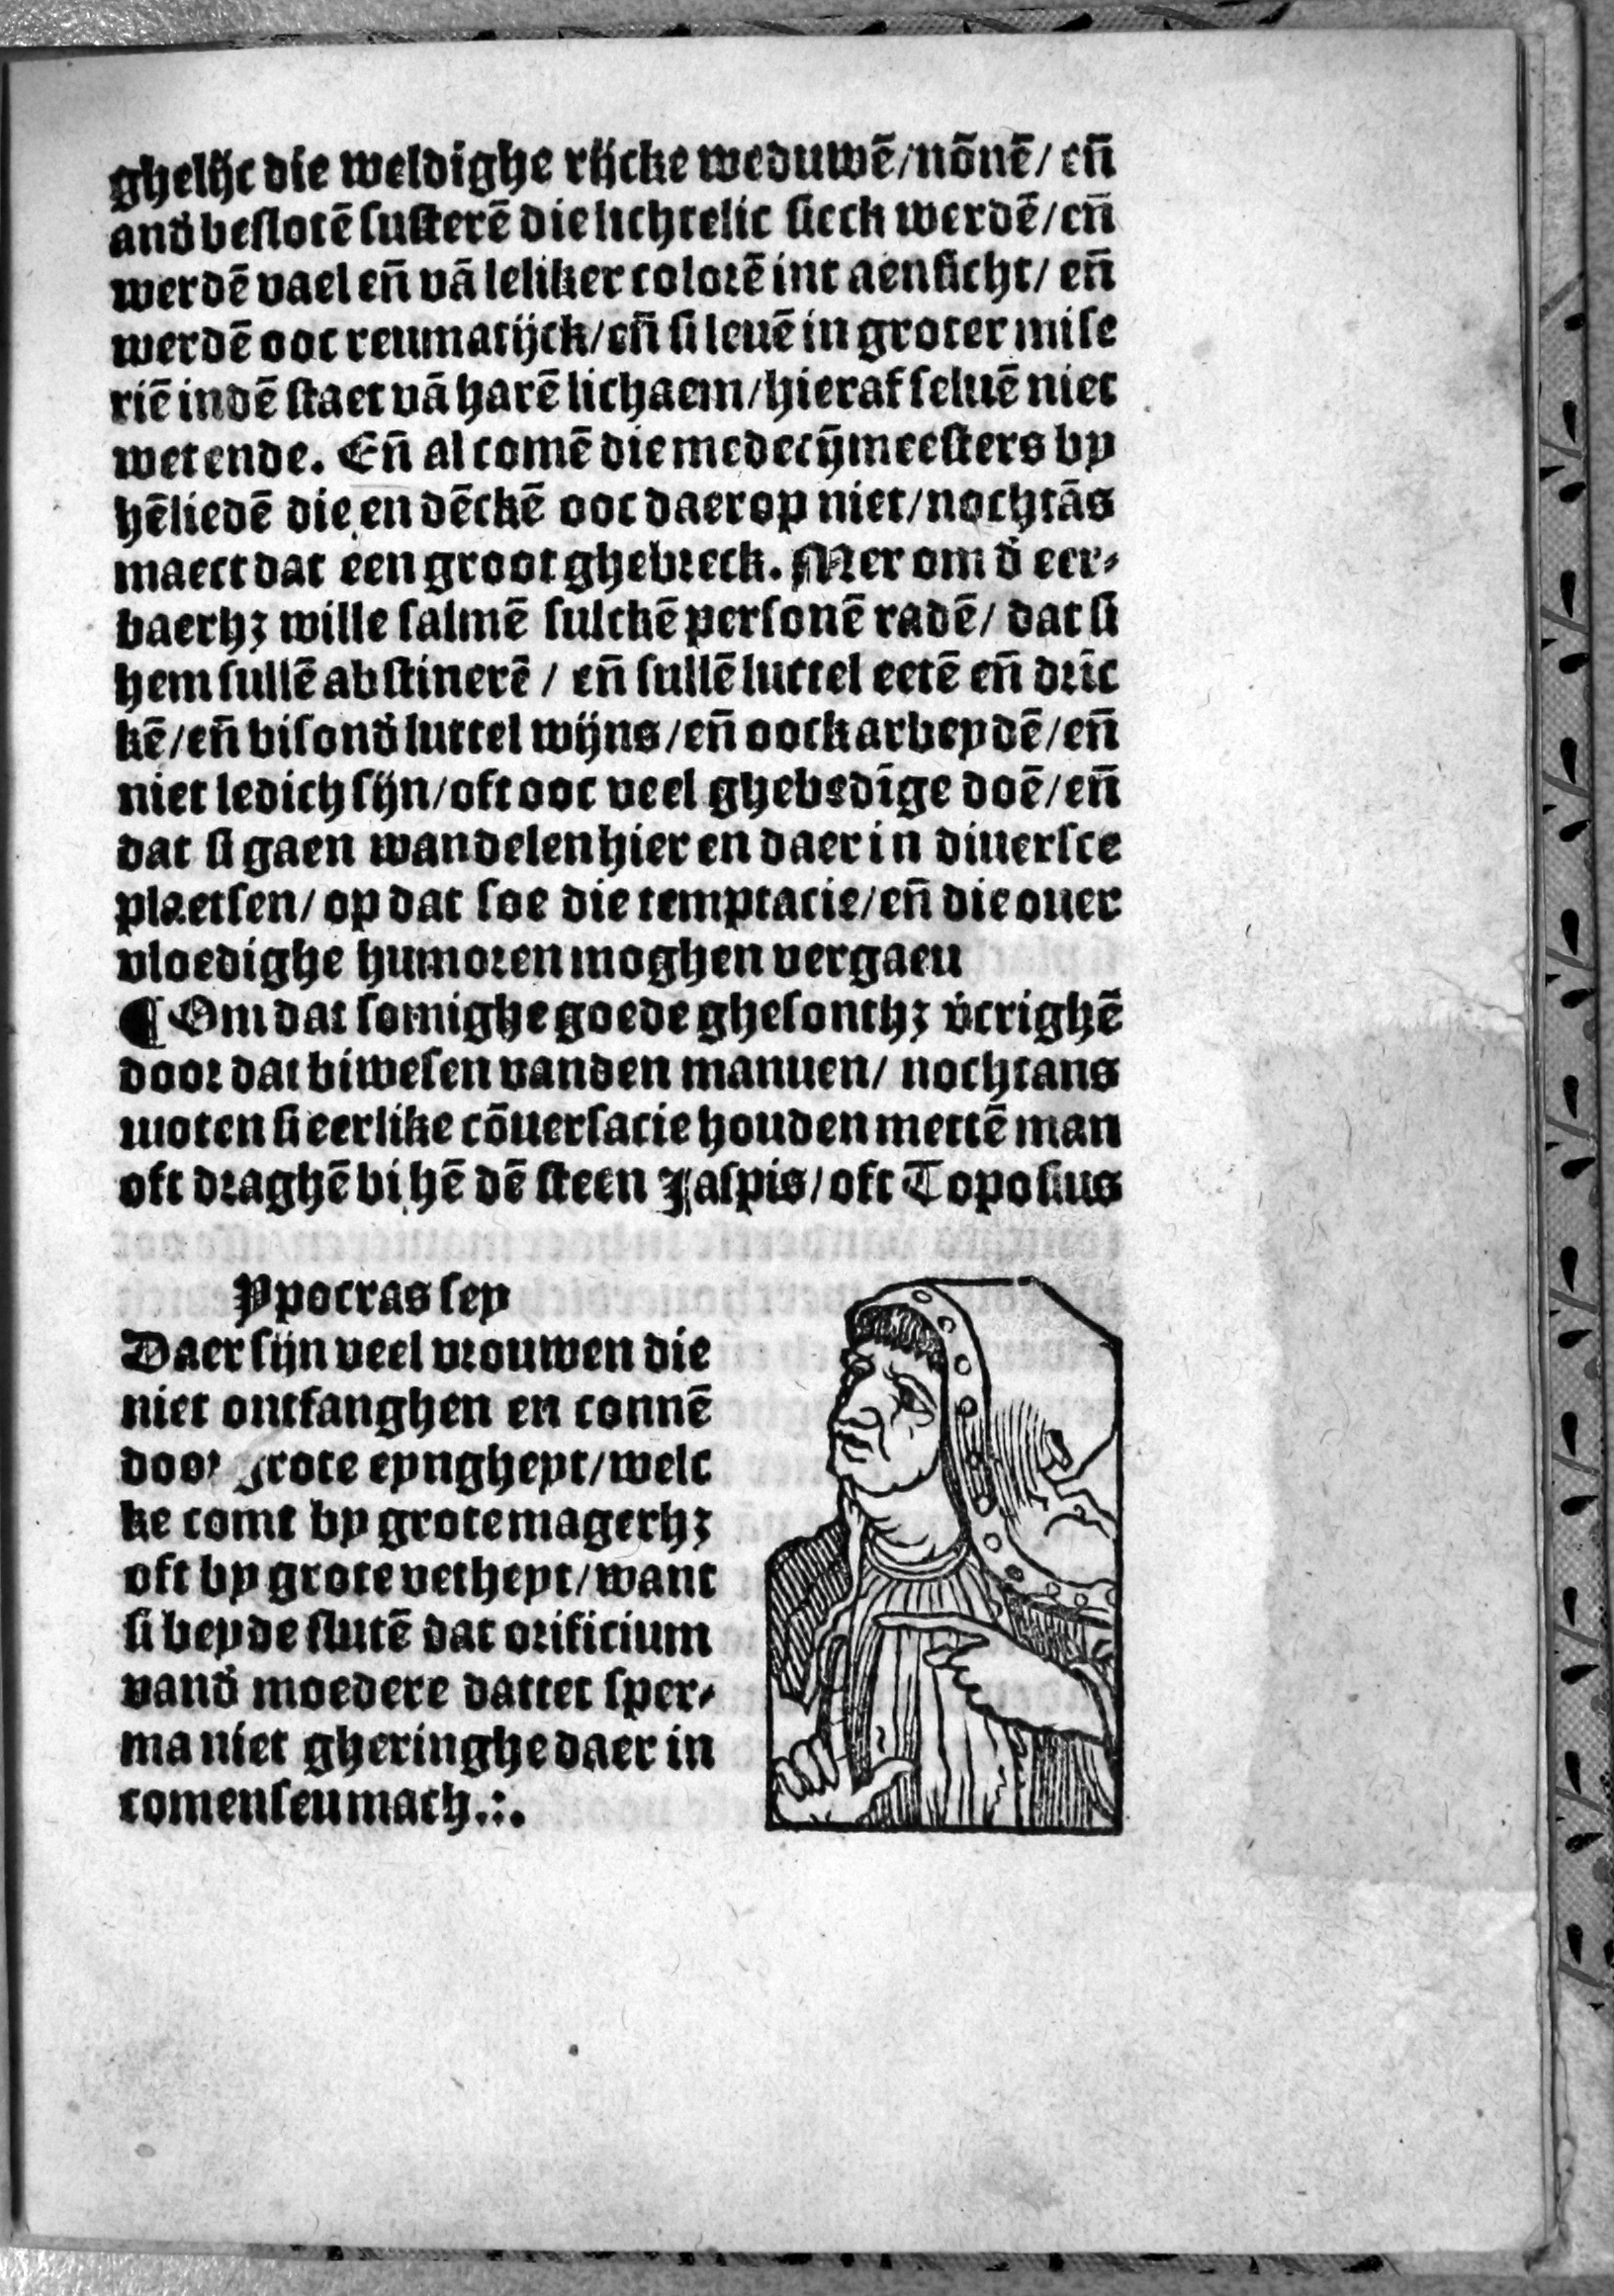 ghelijc die weldighe rijcke weduwē/nōnē/ eñ
anđ beslotē susterē die lichtelic sieck werdē/eñ
werdē vael eñ vā leliker colorē int aensicht/ eñ
werdē ooc reumatijck/eñ si leuē in groter mise
riē in dē staet vā harē lichaem/hieraf seluē niet
wetende. Eñ al comē die medecijmeesters by
hēliedē die en dēckē ooc daer op niet/nochtās
maect dat een groot ghebreck. Mer om đ eer⸗
baerhꝫ wille salmē sulckē personē radē/ dat si
hem sullē abstinerē / eñ sullē luttel eetē eñ drīc
kē/eñ bisonđ luttel wijns/eñ oock arbeydē/eñ
niet ledich sijn/oft ooc veel ghebedīge doē/eñ
dat si gaen wandelen hier en daer in diuersce
plaetsen/ op dat soe die temptacie/eñ die ouer
vloedighe humoren moghen vergaeu
¶ Om dat somighe goede ghesonthꝫ v̓crighē
door dat biwesen vanden manuen/ nochtans
moten si eerlike cōuersacie houden mettē man
oft draghē bi hē dē steen Jaspis/oft Toposius
Ypocras sey
Daer sijn veel vrouwen die
niet ontfanghen en connē
door grote eyngheyt/welc
ke comt by grote magerhꝫ
oft by grote vetheyt/want
si beyde slutē dat orificium
vanđ moedere dattet sper⸗
ma niet gheringhe daer in
comen seu mach.:.